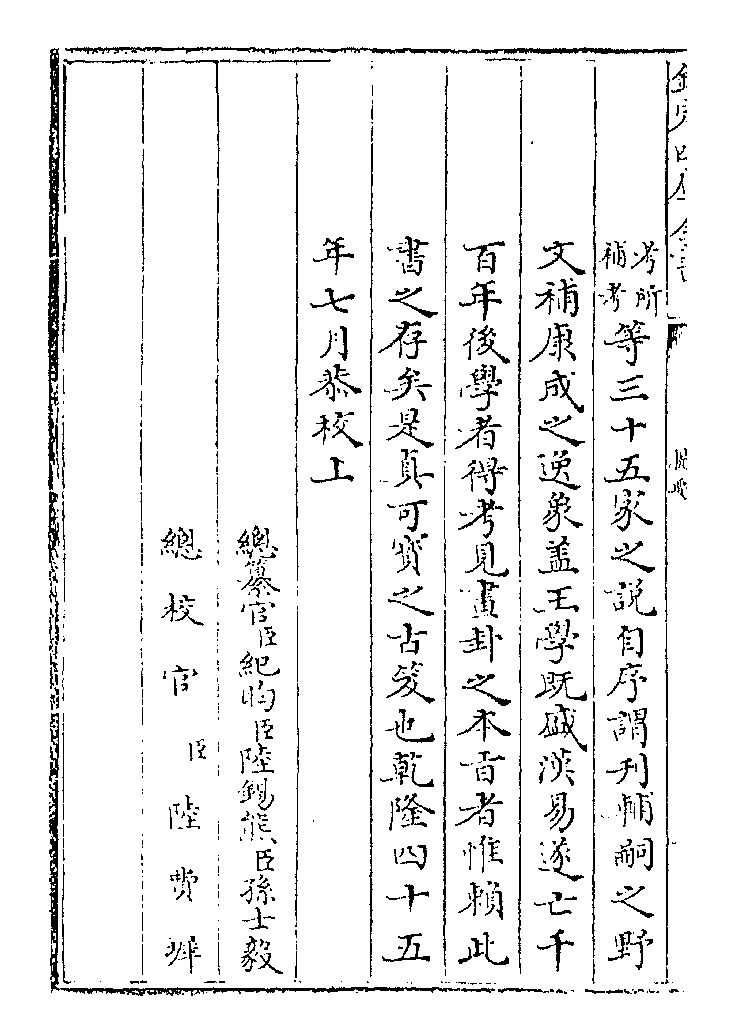 欽定四庫全書
考所補考等三十五家之說自序謂刋輔嗣之野
文補康成之逸象盖王學既盛漢易遂亡千
百年後學者得考見畫卦之本旨者惟賴此
書之存矣是真可寳之古笈也乾隆四十五
年七月恭校上
總纂官臣紀昀臣陸錫熊臣孫士毅
總校官臣陸費墀